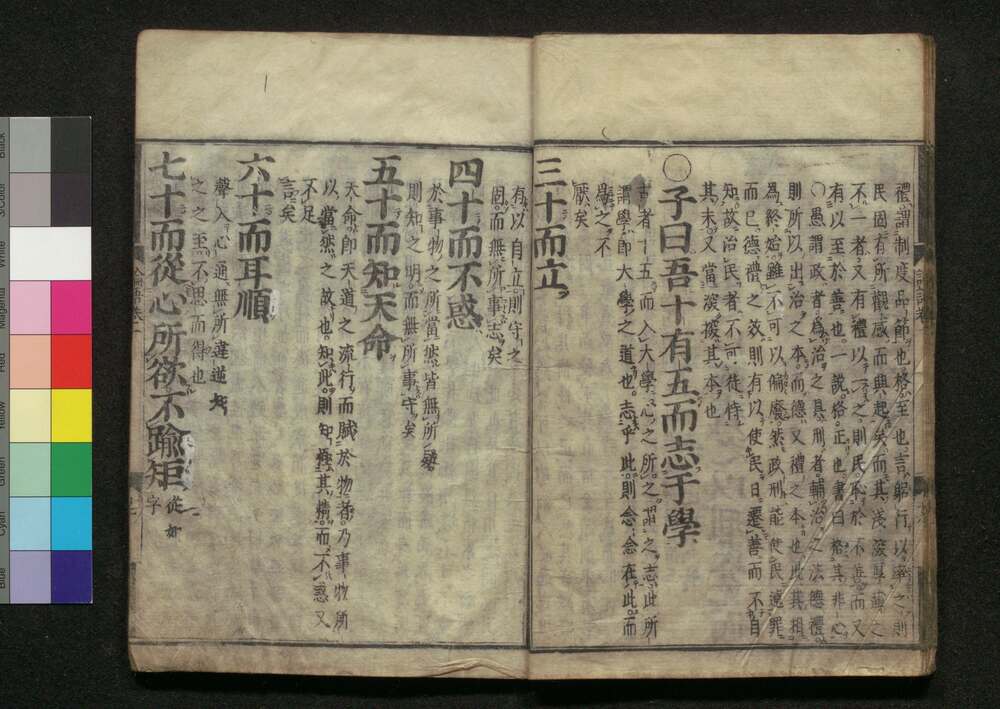 禮謂制度品節也格至也言躬行以率之則
民固有所觀感而興起矣而其淺深厚薄之
不一者又有禮以一之則民恥於不善而又
有以至於善也一說格正也書曰格其非心
○愚謂政者爲治之具刑者輔治之法德禮
則所以出治之本而德又禮之本也此其相
爲終始雖不可以偏廢然政刑能使民遠罪
而已德禮之效則有以使民日遷善而不自
知故治民者不可徒恃
其末又當深探其本也
○子曰吾十有五而志于學
古者十五而入大學心之所之謂之志此所
謂學即大學之道也志乎此則念念在此而
爲之不
厭矣
三十而立
有以自立則守之
固而無所事志矣
四十而不惑
於事物之所當然皆無所疑
則知之明而無所事守矣
五十而知天命
天命即天道之流行而賦於物者乃事物所
以當然之故也知此則知極其精而不惑又
不足
言矣
六十而耳順
聲入心通無所違逆知
之之至不思而得也
七十而從心所欲不踰矩
從如
字
Black
3/Color
White
Magenta
Red
Yellow
Green
Cyan
Blue